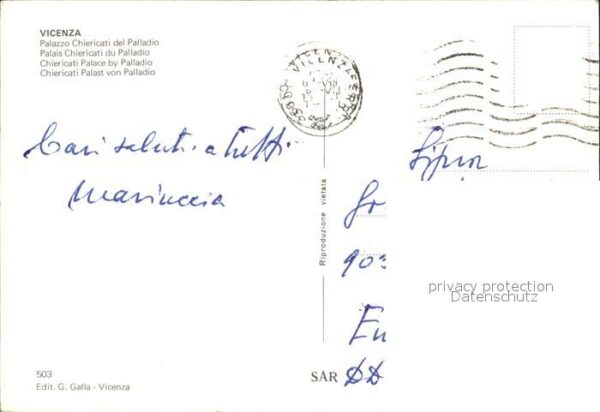 VICENZA
Palazzo Chiericati del Palladio
Palais Chiericati du Palladio
Chiericati Palace by Palladio
Chiericati Palast von Palladio
VICENZA FERROVIA
36100
Cari saluti a tutti
Mariuccia
Riproduzione vietata
903
privacy protection
Datenschutz
503
Edit. G. Galla - Vicenza
SAR